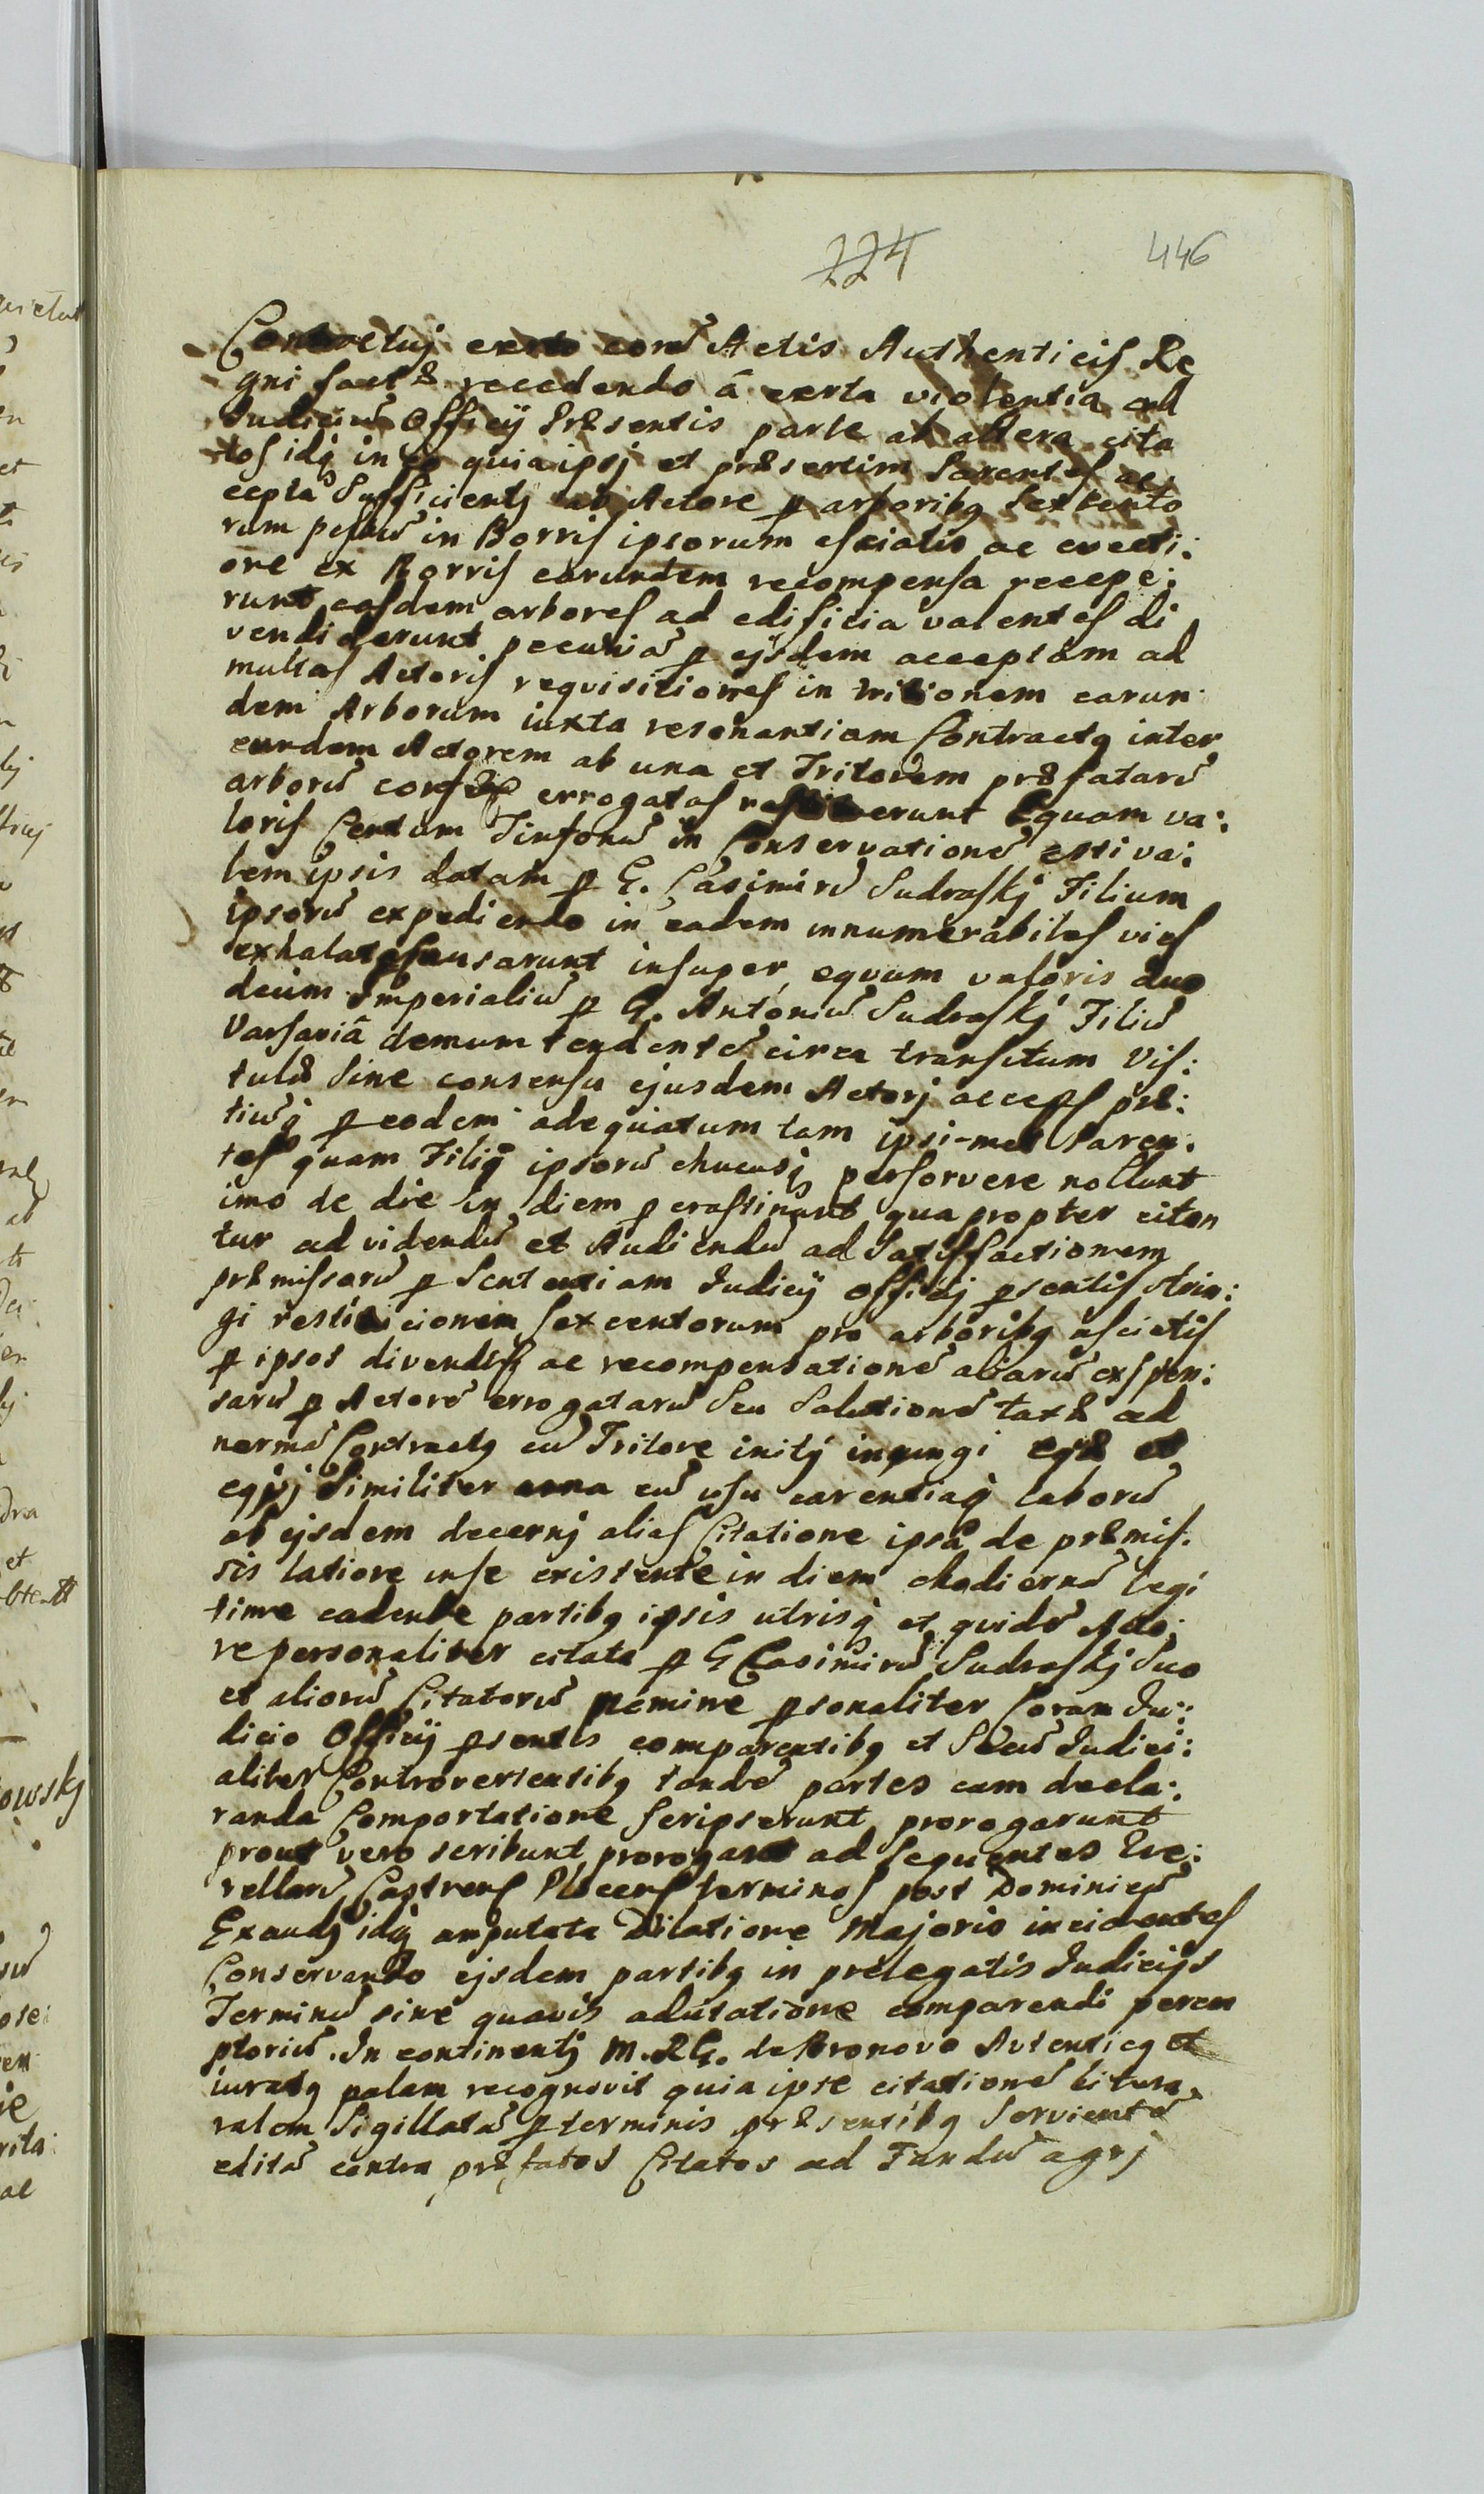 224 446
Contractuj exrto corã Actis Authenticis Re
gni factæ recedendo â exrta violentia ad
Judiciũ Officij Præsentis parte ab altera cita
tos idq in eo quia ipsj et præsertim Parentes ac
ceptã Sufficientj ab Actore p arboribq Sexcento
rum in Borris ipsorum ac evecti:
one ex Borris earundem recompensa recepe:
runt easdem arbores ad edificia valentes di
vendiderunt pecuniã p ejsdem acceptam ad
multas Actoris requisitiones in tritionem earun
dem Arborum iuxta resonantiam Contractq inter
eundem Actorem ab una et Tritorem præfatarũ
arborũ errogatas Equam va:
loris Centum Tinfonũ in Conservationẽ estiva:
lem ipsis datam p G. Casimirũ Sudraskj Filium
ipsorũ expediendo in eadem innumerabiles vies
insuper, equum valoris duo
decim Imperialiũ p G. Antoniũ Sudraskj Filiũ
Varsaviã demum tendentẽ circa transitum Vis:
tulæ Sine consensu ejusdem Actorj præ:
tiũq p eodem adequatum tam ipsi-met Paren:
tes quam Filiq ipsorũ chucusq persorvere nollunt
imo de die in diem p crastinant qua propter citan
tur ad videndũ et Audiendũ ad Satisfactionem
præmissarũ p Sententiam Judicij officij psentis strin:
gi restitucionem Sexcentorum pro arboribq
p ipsos ac recompensationẽ aliarũ expen:
sarũ p Actorẽ errogatarũ Seu Solutionẽ taxæ ad
normã Contractq cũ Tritore initj injungi eqæ et
eqvj Similiter cũ usu carentiaq laborũ
ab ejsdem decernj alias Citatione ipsa de præmis:
sis latiore in se existente in diem chodiernã legi
time cadente partibq ipsis utrisq et quidẽ Acto:
re personaliter citata p G Casimirũ Sudraskj Suo
et aliorũ Citatorũ nomine psonaliter Coram Ju:
dicio Officij psentis comparentibq et Secũ Judici:
aliter Controvertentibq tandẽ partes eam decla:
randa Comportatione Scripserunt prorogarunt
prout vero scribunt prorogant ad Sequentes Que:
rellarũ Castrens Plocens terminos post Dominicã
Exaudj idq amputata Dilatione Majoris incidentes
Conservando ejsdem partibq in prelegatis Judicijs
Terminũ sine quavis adcitatione comparendi perem
ptoriũ. In continentj M. R G. de Bronovo Autenticq et
iuratq palam recognovit quia ipse citationẽ litera
ralem Sigillatã p terminis præsentibq Servientẽ
editã contra præfatos Citatos ad Fundũ agrj